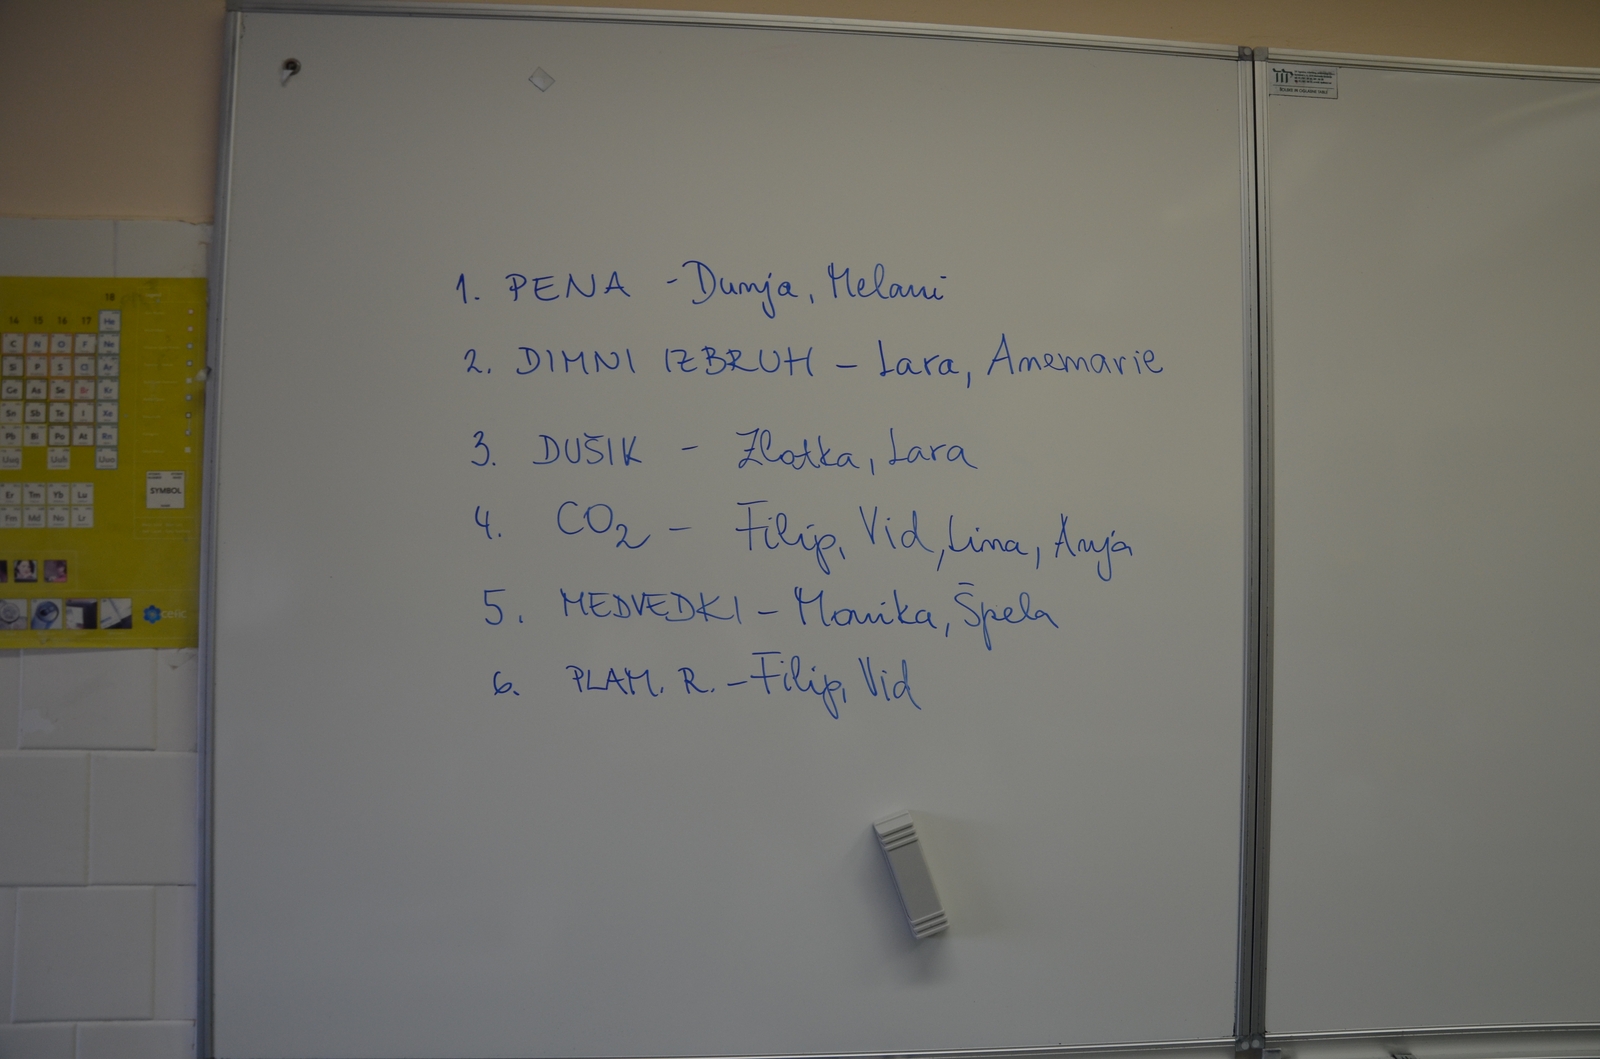 1. PENA - Dunja, Melani
2. DIMNI IZBRUH - Lara, Anemarie
3. DUŠIK - Zlatka, Lara
4. CO2 - Filip, Vid, Lina, Anja
5. MEDVEDKI - Monika, Špela
6. PLAM. R. - Filip, Vid
18
14 15 16 17 He
C N O F Ne
Si P S Cl Ar
Ge As Se Br Kr
Sn Sb Te I Xe
Pb Bi Po At Rn
Uuq Uuh Uuo
Er Tm Yb Lu
Fm Md No Lr
SYMBOL
cefic